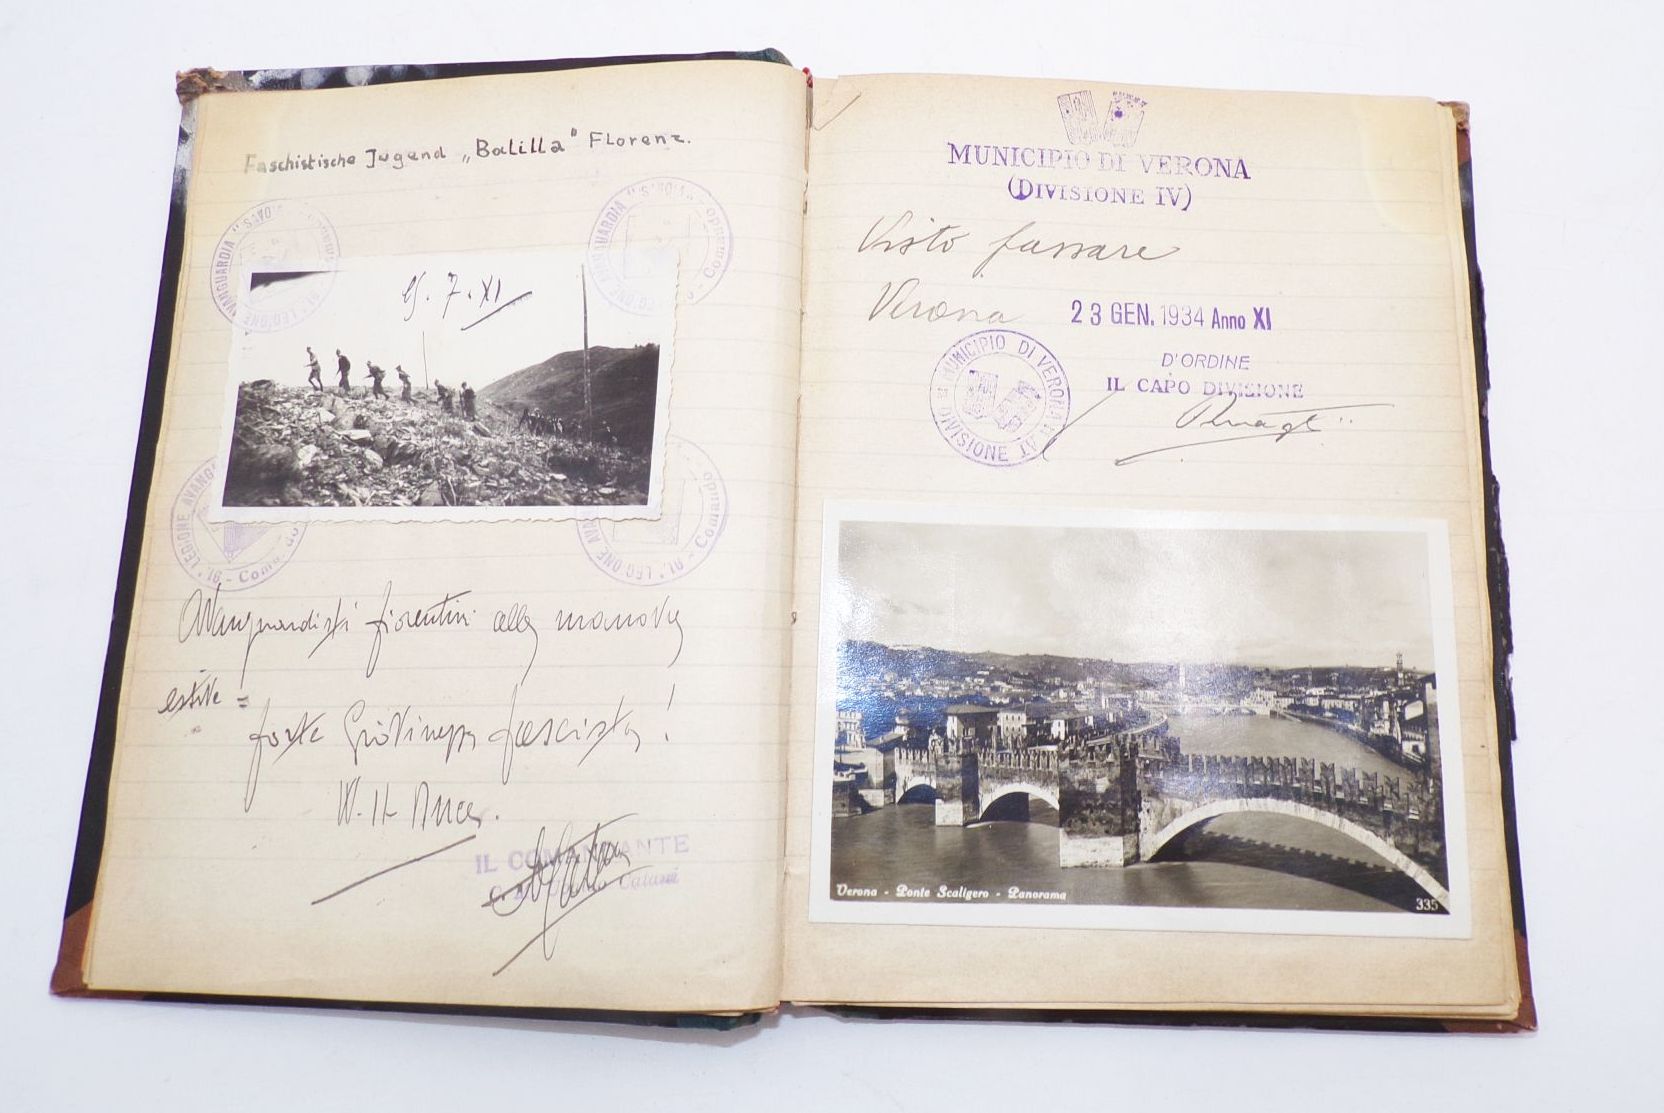 Faschistische Jugend „Balilla" Florenz.
91ª LEGIONE AVANGUARDIA "SAVOIA" - Comando
7.XI
Avanguardisti fiorentini alla manovra
estive =
forte Giovinezza fascista!
W. Il Duce.
IL COMANDANTE
MUNICIPIO DI VERONA
(DIVISIONE IV)
Visto passare
Verona 23 GEN. 1934 Anno XI
MUNICIPIO DI VERONA
DIVISIONE
D'ORDINE
IL CAPO DIVISIONE
Verona - Ponte Scaligero - Panorama
335